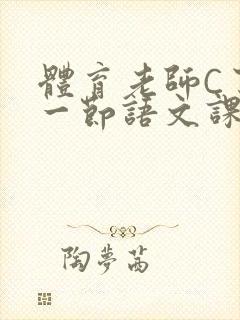 體育老師C
一節語文課
陶夢茜